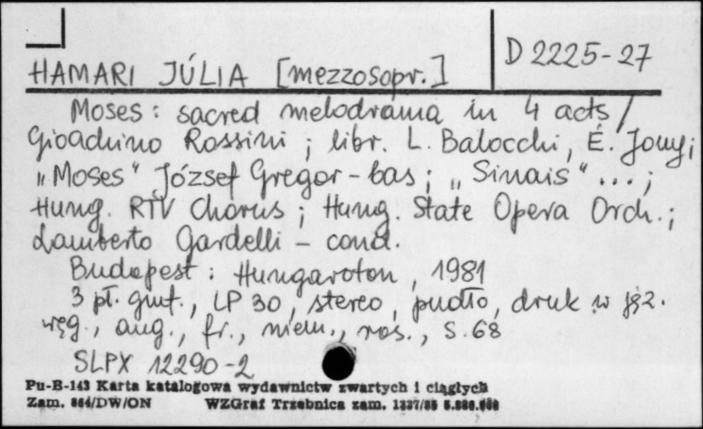 D 2225-27
HAMARI JÚLIA [mezzosopr.]
Moses: sacred melodrama in 4 acts /
Gioachino Rossini ; libr. L. Balocchi, É. Jouy;
„Moses" József Gregor - bas ; „Sinais" ... ;
Hung. RTV Chorus ; Hung. State Opera Orch. ;
Lamberto Gardelli - cond.
Budapest : Hungaroton, 1981
3 pł. gmf., LP 30, stereo, pudło, druk w jęz.
węg., ang., fr., niem., ros., S. 68
SLPX 12290-2
Pu-B-143 Karta katalogowa wydawnictw zwartych i ciągłych
Zam. 864/DW/ON WZGraf Trzebnica zam.